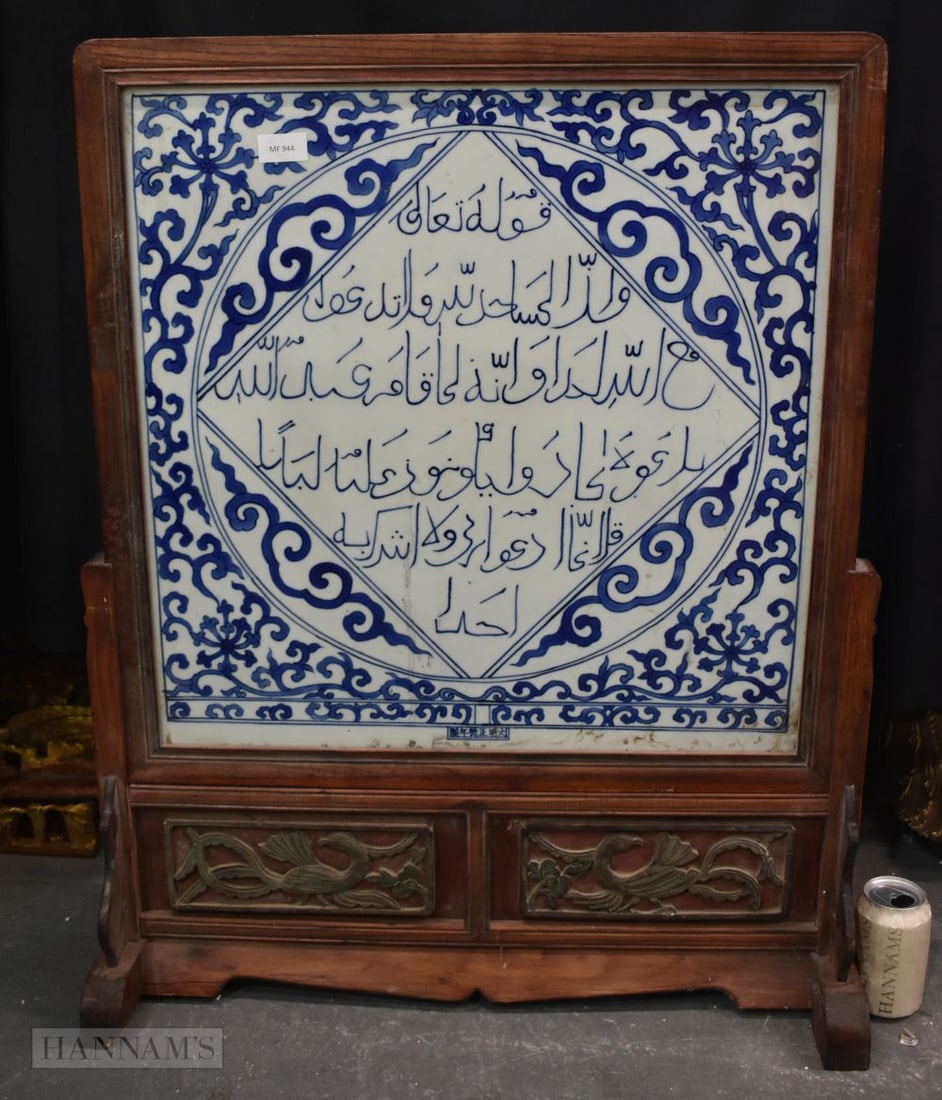 MF 944
قوله تعالى
وانّ المساجد للّه فلا تدعوا
مع اللّه احدا وانّه لما قام عبد اللّه
يدعوه كادوا يكونون عليه لبدًا
قل انّما ادعوا ربي ولا اشرك به
احدا
大明正德年製
HANNAMS
HANNAM'S